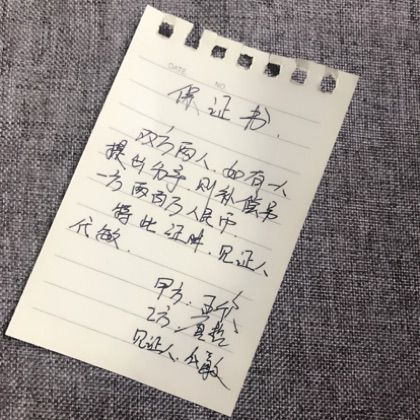 DATE NO
保证书.
双方两人.如有一人
提出分手.则补偿另
一方两百万人民币.
特此证明.见证人
代敏.
甲方.
乙方.
见证人.